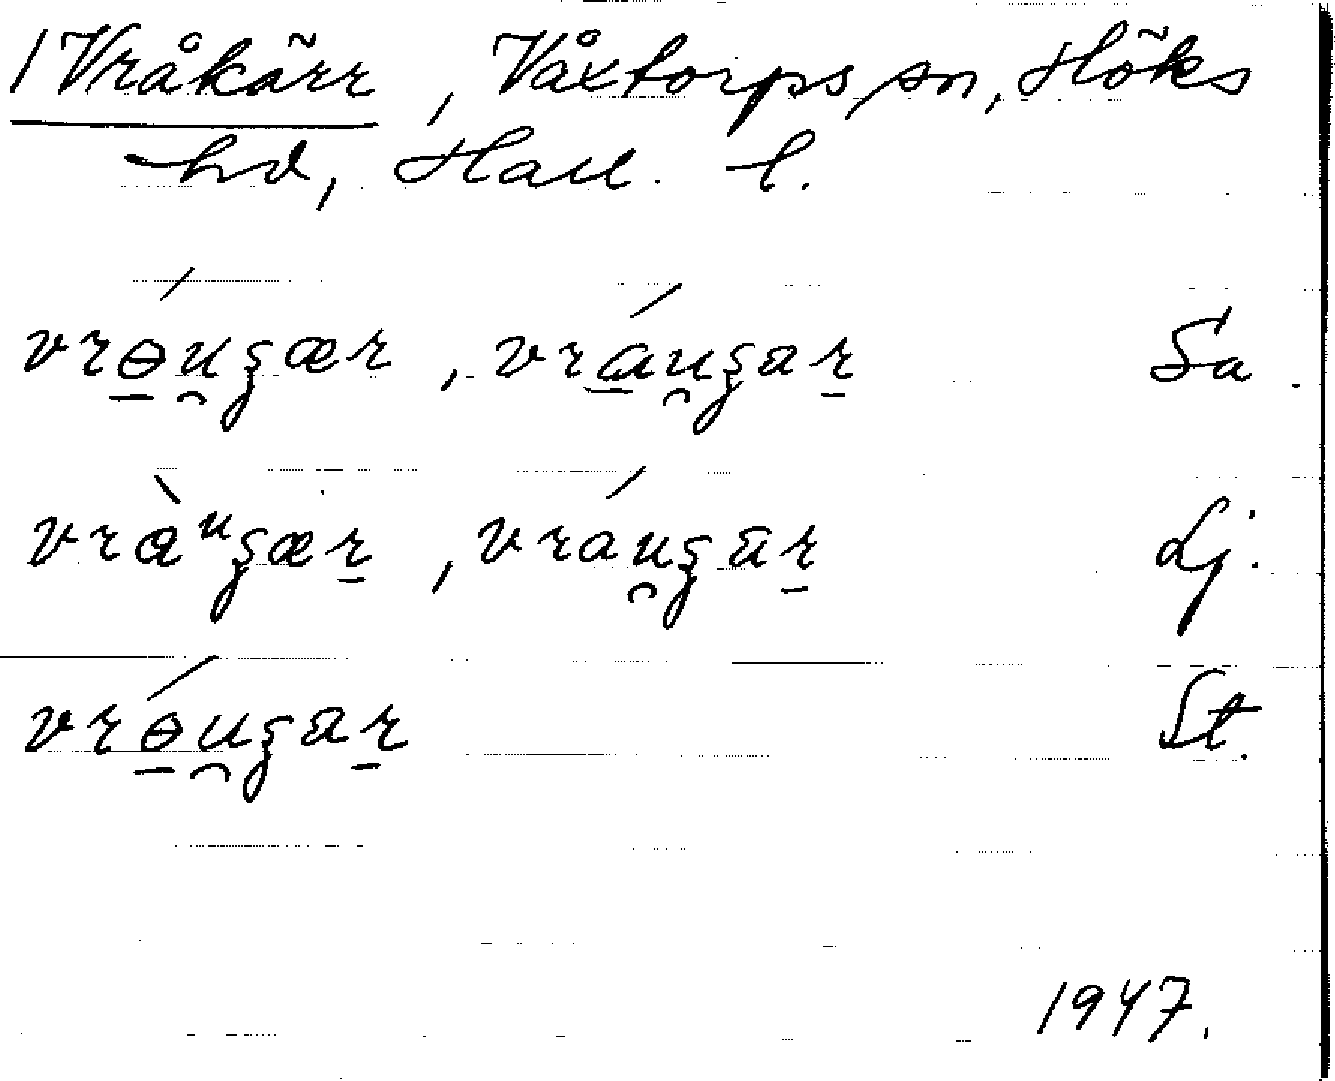 1 Vråkärr, Våxtorps sn, Höks
hd, Hall. l.
vrө́u̯ʒær, vráu̯ʒar Sa.
vràᵘʒær, vráu̯ʒar Lj.
vrө́u̯ʒar St.
1947.